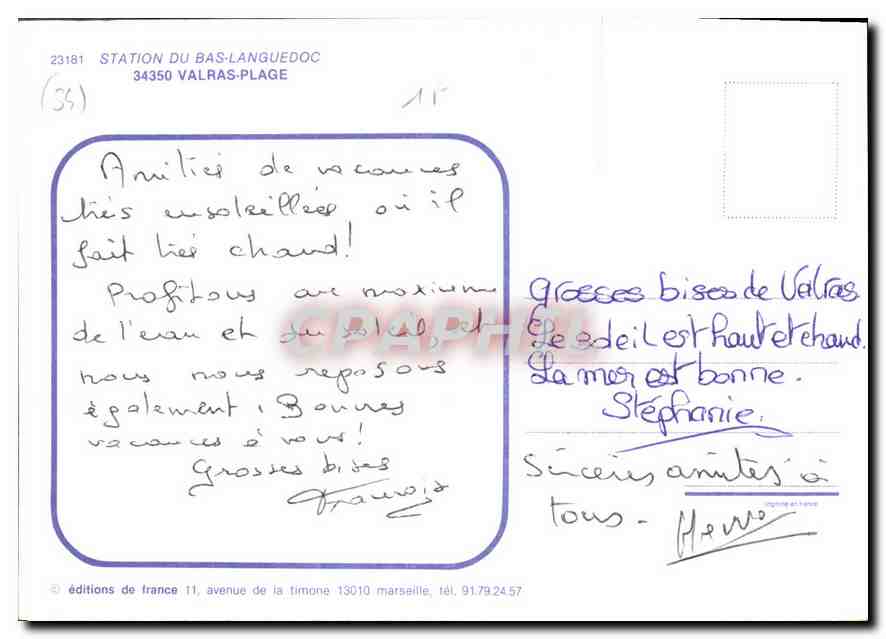 23181 STATION DU BAS-LANGUEDOC
34350 VALRAS-PLAGE
(34)
1F
Amitiés de vacances
très ensoleillées où il
fait très chaud!
Profitons au maximum
de l'eau et du soleil, et
nous nous reposons
également. Bonnes
vacances à vous!
Grosses bises
François
Grosses bises de Valras
Le soleil est haut et chaud.
La mer est bonne.
Stéphanie.
Sincères amitiés à
tous - Hervé
imprimé en france
CPAPHIL
© éditions de france 11, avenue de la timone 13010 marseille, tél. 91.79.24.57